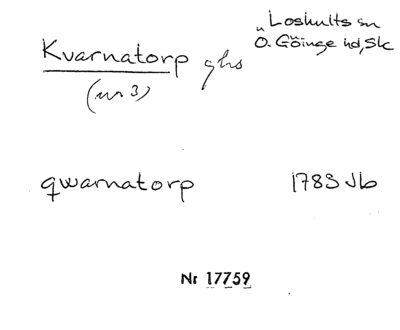 Kvarnatorp ghs
(nr 3)
Loshults sn
Ö. Göinge hd, Sk
qwarnatorp 1783 Jb
Nr 17759